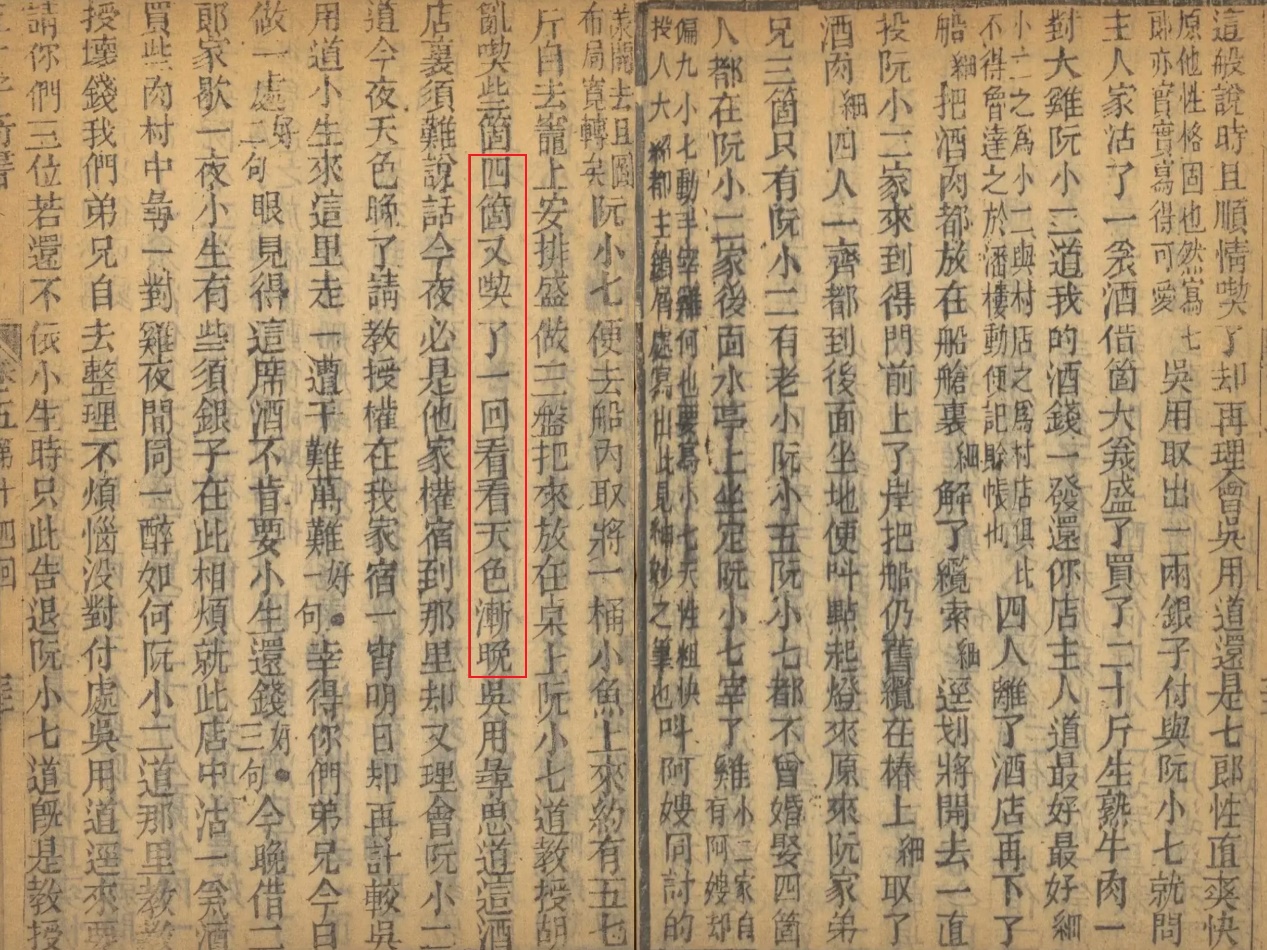 這般說時且順情喫了却再理會吳用道還是七郎性直爽快
原他性格固也然寫七
郎亦實實寫得可愛
吳用取出一兩銀子付與阮小七就問
主人家沽了一瓮酒借箇大瓮盛了買了二十斤生熟牛肉一
對大雞阮小二道我的酒錢一發還你店主人道最好最好細
小二之為小二與村店之為村店俱比
不得魯達之於潘樓動便記賒帳也
四人離了酒店再下了
船細把酒肉都放在船艙裏細解了纜索細逕划將開去一直
投阮小二家來到得門前上了岸把船仍舊纜在樁上細取了
酒肉細四人一齊都到後面坐地便叫點起燈來原來阮家弟
兄三箇只有阮小二有老小阮小五阮小七都不曾婚娶四箇
人都在阮小二家後面水亭上坐定阮小七宰了雞
小二家自
有阿嫂却
偏九小七動手宰雞何也要寫小七天性粗快
投人大都主屑處寫出此見細妙之筆也
叫阿嫂同討的
漾開去且圖
布局寬轉矣
阮小七便去船內取將一桶小魚上來約有五七
斤自去竈上安排盛做三盤把來放在桌上阮小七道教授胡
亂喫些箇四箇又喫了一回看看天色漸晚吳用尋思道這酒
店裏須難說話今夜必是他家權宿到那里却又理會阮小二
道今夜天色晚了請教授權在我家宿一宵明日却再計較吳
用道小生來這里走一遭千難萬難好一句幸得你們弟兄今日
做一處好二句眼見得這席酒不肯要小生還錢好三句今晚借二
郎家歇一夜小生有些須銀子在此相煩就此店中沽一瓮酒
買些肉村中尋一對雞夜間同一醉如何阮小二道那里教教
授壞錢我們弟兄自去整理不煩惱沒對付處吳用道逕來要
請你們三位若還不依小生時只此告退阮小七道旣是教授
卷五第十四回